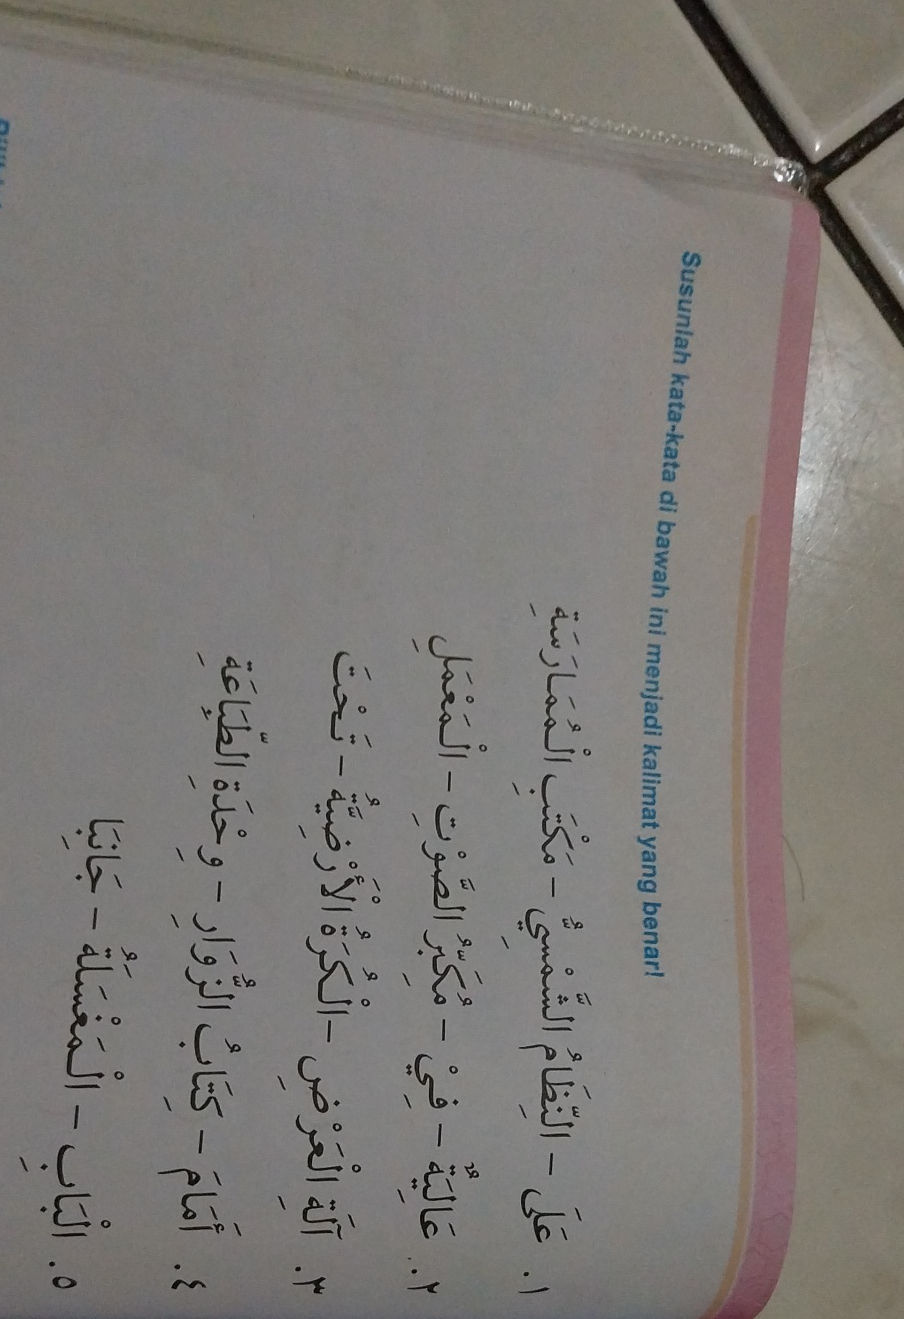 Susunlah kata-kata di bawah ini menjadi kalimat yang benar!
١. عَلَى – النِّظَامُ الشَّمْسِيُّ – مَكْتَبِ الْمُمَارَسَةِ
٢. عَالِيَةٌ – فِيْ – مُكَبِّرُ الصَّوْتِ – الْمَعْمَلِ
٣. آلَةِ الْعَرْضِ – الْكُرَةُ الْأَرْضِيَّةُ – تَحْتَ
٤. أَمَامَ – كِتَابُ الزُّوَارِ – وِحْدَةِ الطِّبَاعَةِ
٥. الْبَابِ – الْمَغْسَلَةُ – جَانِبَا